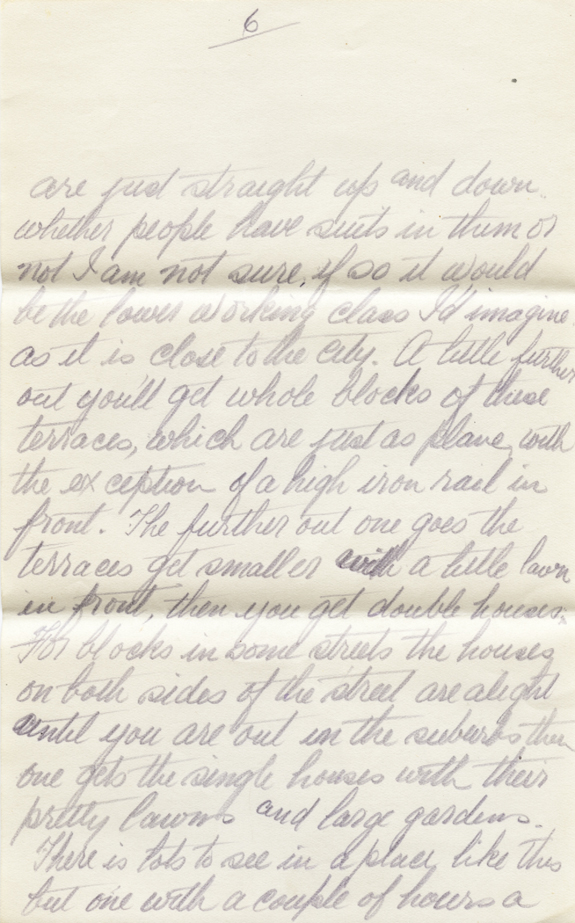 6
are just straight up and down
whether people have suits in them or
not I am not sure, if so it would
be the lower working class I'd imagine
as it is close to the city. A little further
out you'll get whole blocks of these
terraces, which are just as plane, with
the exception of a high iron rail in
front. The further out one goes the
terraces get smaller with a little lawn
in front, then you get double houses.
For blocks in some streets the houses
on both sides of the street are alight
until you are out in the suburbs then
one gets the single houses with their
pretty lawns and large gardens.
There is lots to see in a place like this
but one with a couple of hours a